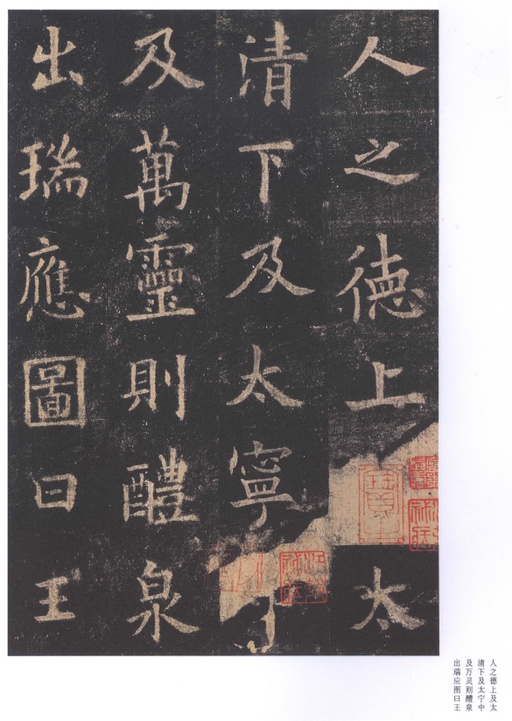 人之德上太
清下及太寧
及萬靈則醴泉
出瑞應圖曰王
人之德上及太
清下及太宁中
及万灵则醴泉
出瑞应图曰王